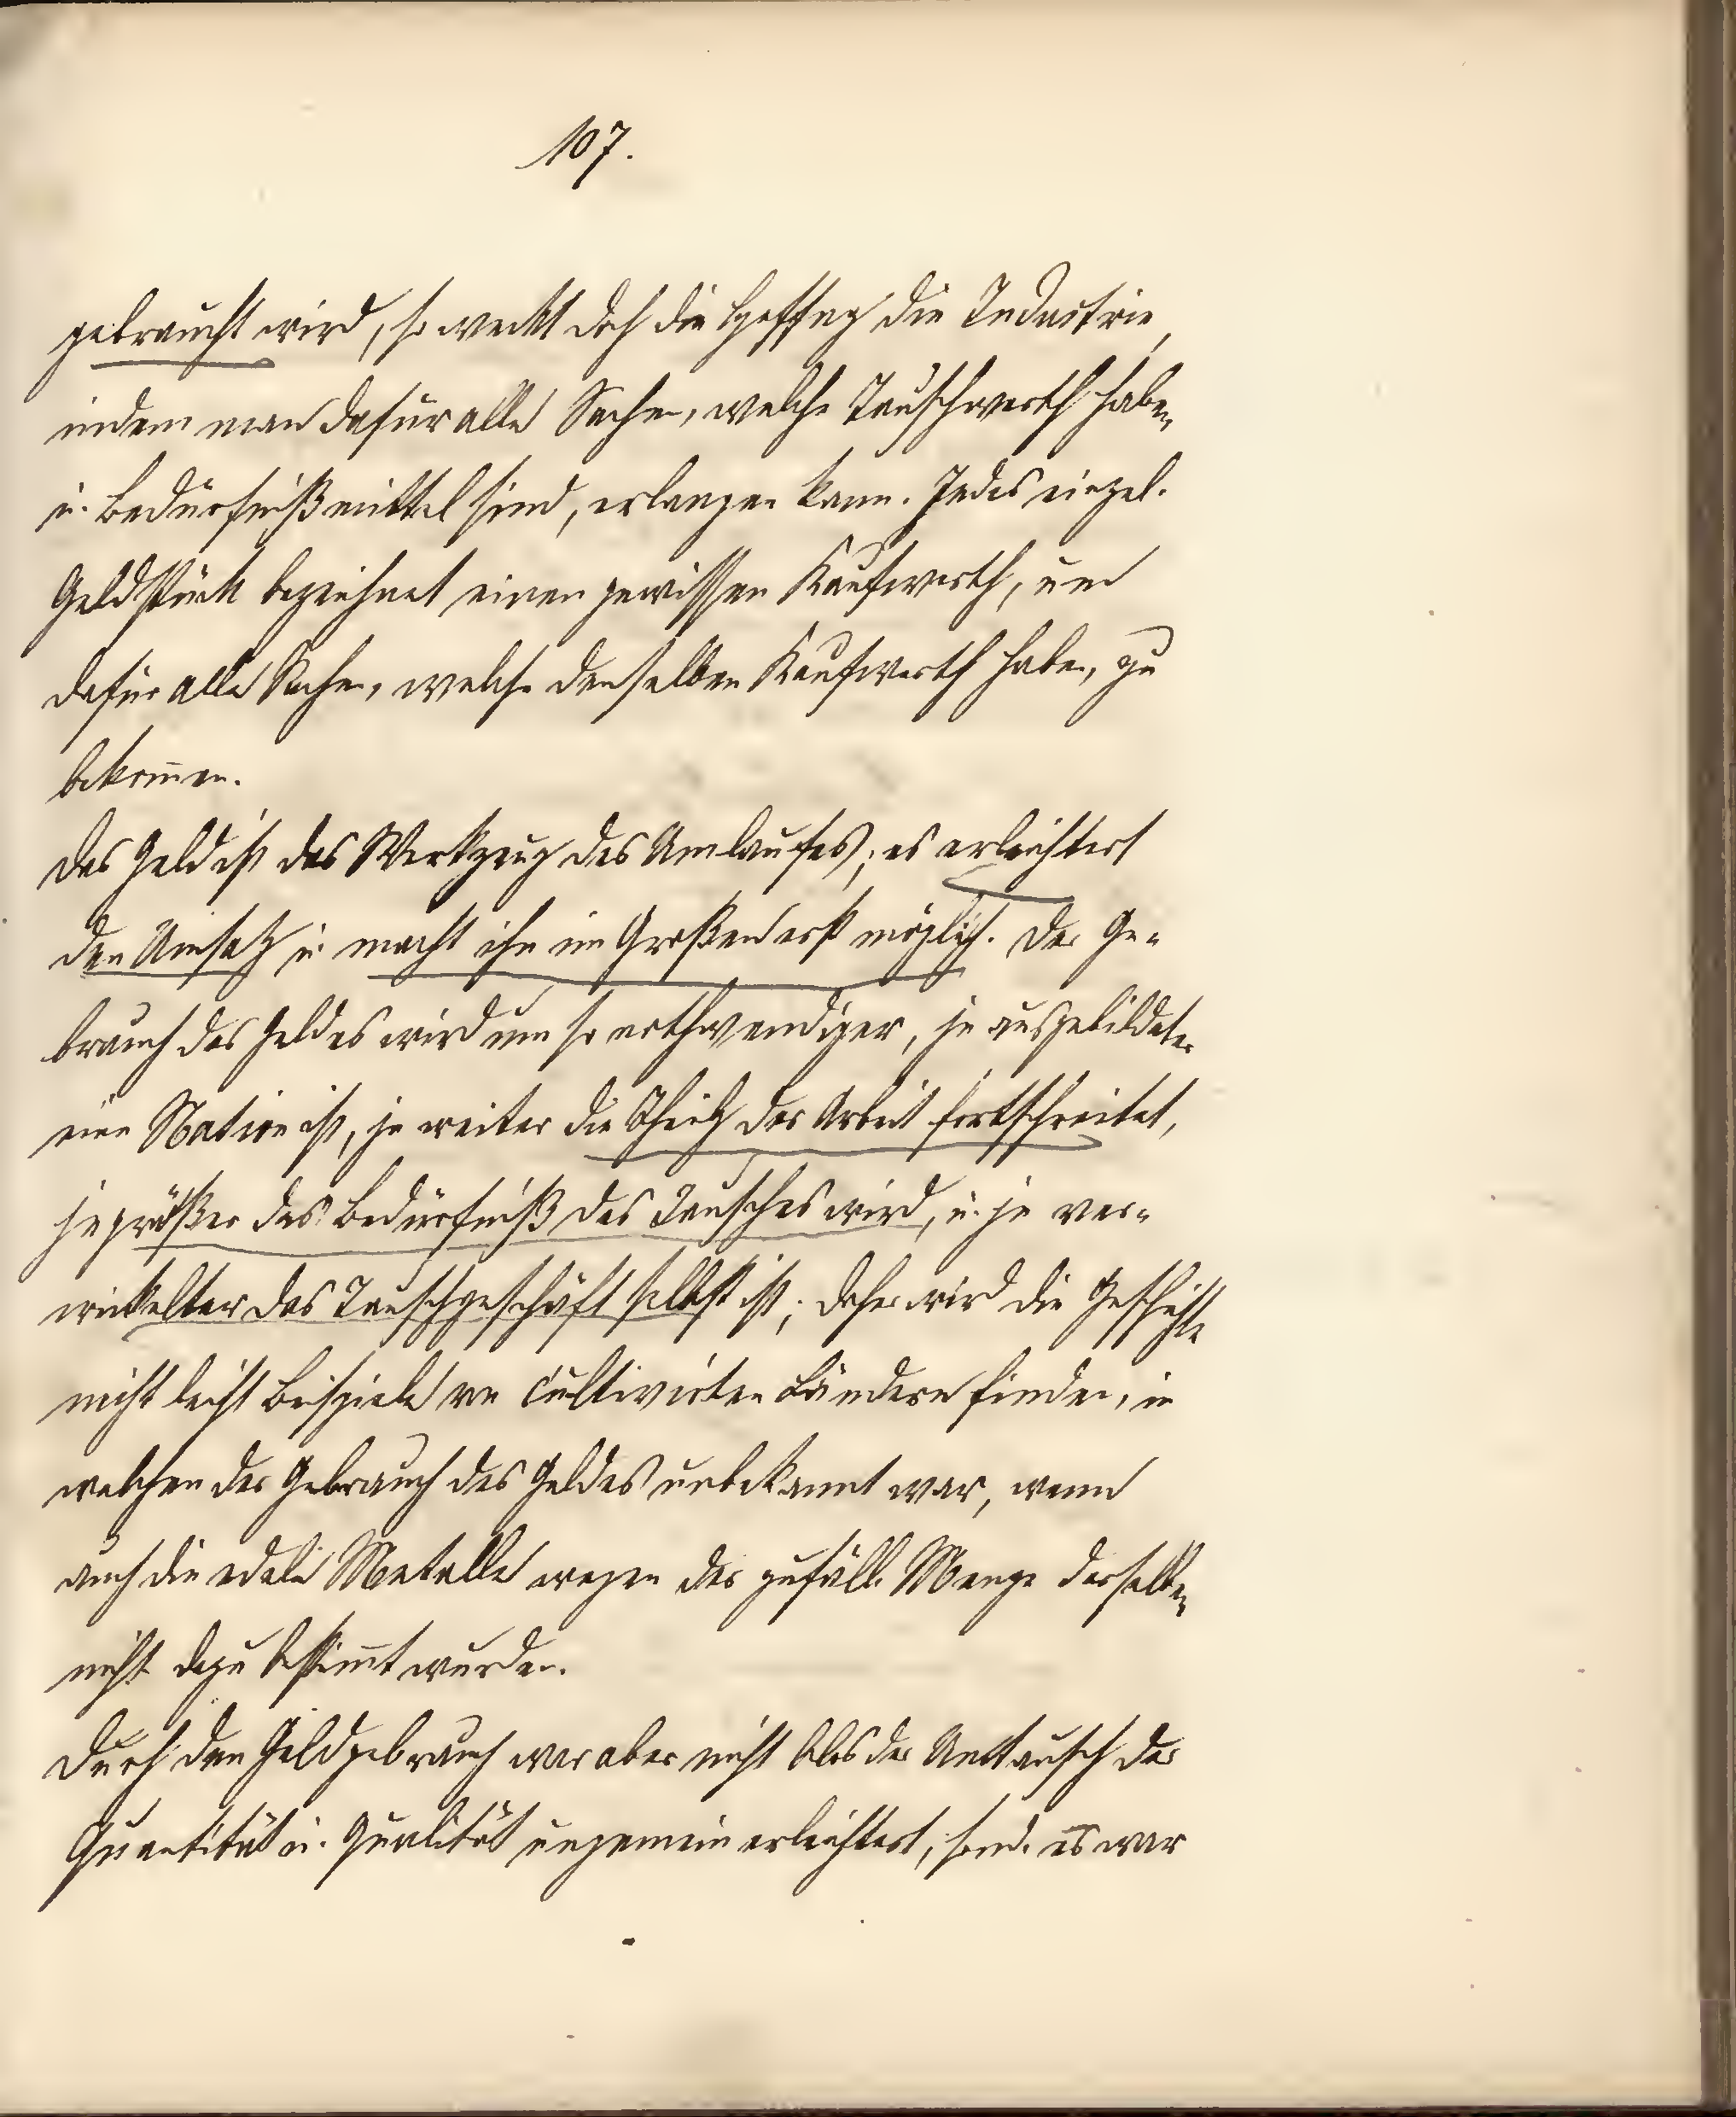 107.
gebraucht wird, so weckt doch die Hoffng die Industrie,
indem man dafür alle Sachen, welche Tauschwerth haben
u. Bedürfnißmittel sind, erlangen kann. Jedes einzel.
Geldstück bezeichnet einen gewissen Kaufwerth, um
dafür alle Sachen, welche denselben Kaufwerth haben, zu
bekom̅en.
Das Geld ist das Werkzeug des Umlaufes; es erleichtert
den Umsatz u. macht ihn im Großen erst möglich. Der Ge-
brauch des Geldes wird um so nothwendiger, je ausgebildeter
eine Nation ist, je weiter die Theilg der Arbeit fortschreitet,
je größer das Bedürfniß des Tausches wird, u. je ver-
wickelter das Tauschgeschäft selbst ist; daher wird die Geschichte
nicht leicht Beispiele von cultivirten Ländern finden, in
welchen der Gebrauch des Geldes unbekannt war, wenn
auch die edeln Metalle wegen der zufäll. Menge derselben
nicht dazu bestim̅t wurden.
Durch den Geldgebrauch war aber nicht blos der Umtausch der
Quantität u. Qualität ungemein erleichtert, sond. es war